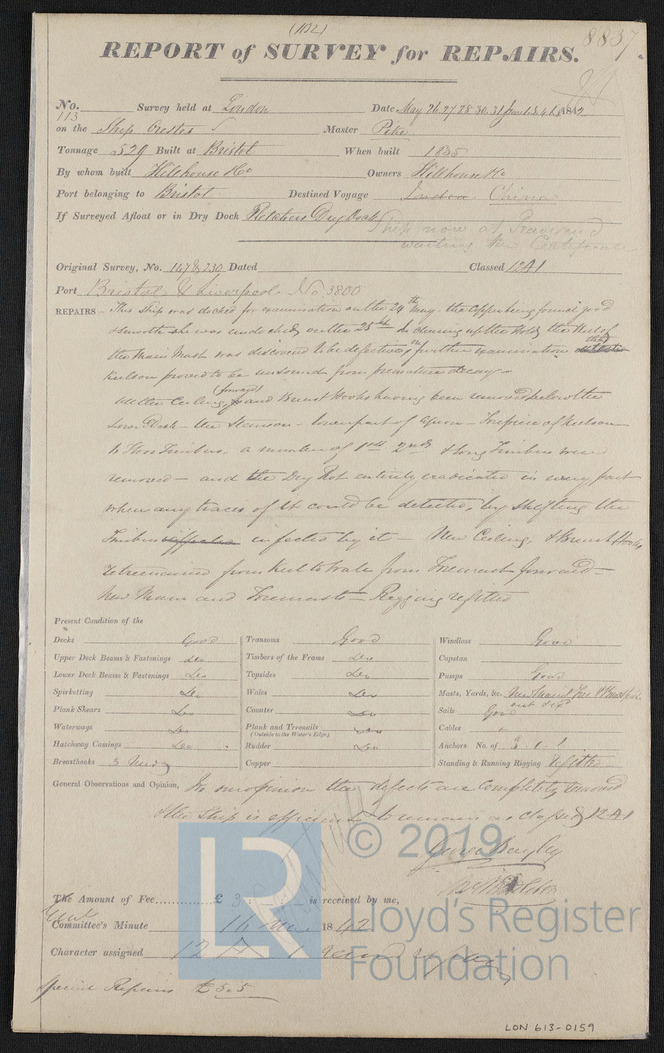 (102)
8837.
REPORT of SURVEY for REPAIRS.
No. 113 Survey held at London Date May 26 27 28 30. 31 June 1842
on the Ship Orestes Master Pike
Tonnage 529 Built at Bristol When built 1835
By whom built Hillhouse & Co Owners Hillhouse & Co
Port belonging to Bristol Destined Voyage London China
If Surveyed Afloat or in Dry Dock Fletchers Dry Dock
Ship now at Gravesend
waiting the Certificate
Original Survey, No. 147 & 230 Dated Classed 12 A1
Port Bristol & Liverpool No. 3800
REPAIRS - This Ship was docked for examination on the 24th May - the Copper being found good
& smooth she was undocked on the 25th. In clearing up the Hold, the Heel of
the Main Mast was discovered to be defective, on further examination the
Keelson proved to be unsound from premature decay -
Ceiling, (forward) and Breast Hooks having been removed below the
Lower Deck - the Stemson - lower part of Apron - Fore piece of Keelson
Floor Timbers, a number of 1st 2nd & Long Timbers were
removed - and the Dry Rot entirely eradicated in every part
where any traces of it could be detected, by shifting the
Timbers infected by it - New Ceiling, & Breast Hooks
from Keel to from Foremast forward -
New Main and Foremast - Rigging refitted
Present Condition of the
Decks Good Transoms Good Windlass Good
Upper Deck Beams & Fastenings do Timbers of the Frame do Capstan
Lower Deck Beams & Fastenings do Topsides do Pumps Good
Spirketting do Wales do Masts, Yards, &c. New Main & Fore & Bowsprit
Plank Shears do Counter do Sails Good
Waterways do Plank and Treenails (Outside to the Water's Edge.) do Cables
Hatchway Coamings do Rudder do Anchors No. of 3. 1. 1
Breasthooks 3 New Copper Standing & Running Rigging refitted
General Observations and Opinion, In our opinion the defects are completely removed
& the Ship is efficient to remain as classed 12 A1
George Bayley
The Amount of Fee £ 3 : is received by me,
Committee's Minute 16 1842
Character assigned 12 A 1
Special Repairs £5.5
LON 613-0159
© 2019
LR
Lloyd's Register
Foundation